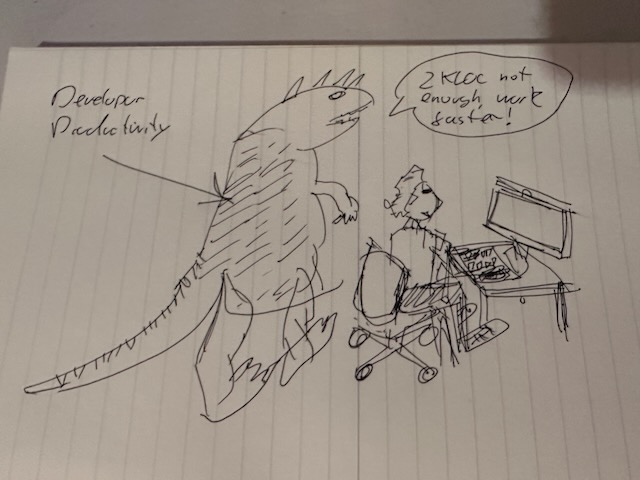 Developer
Productivity
2 KLOC not
enough, work
faster!